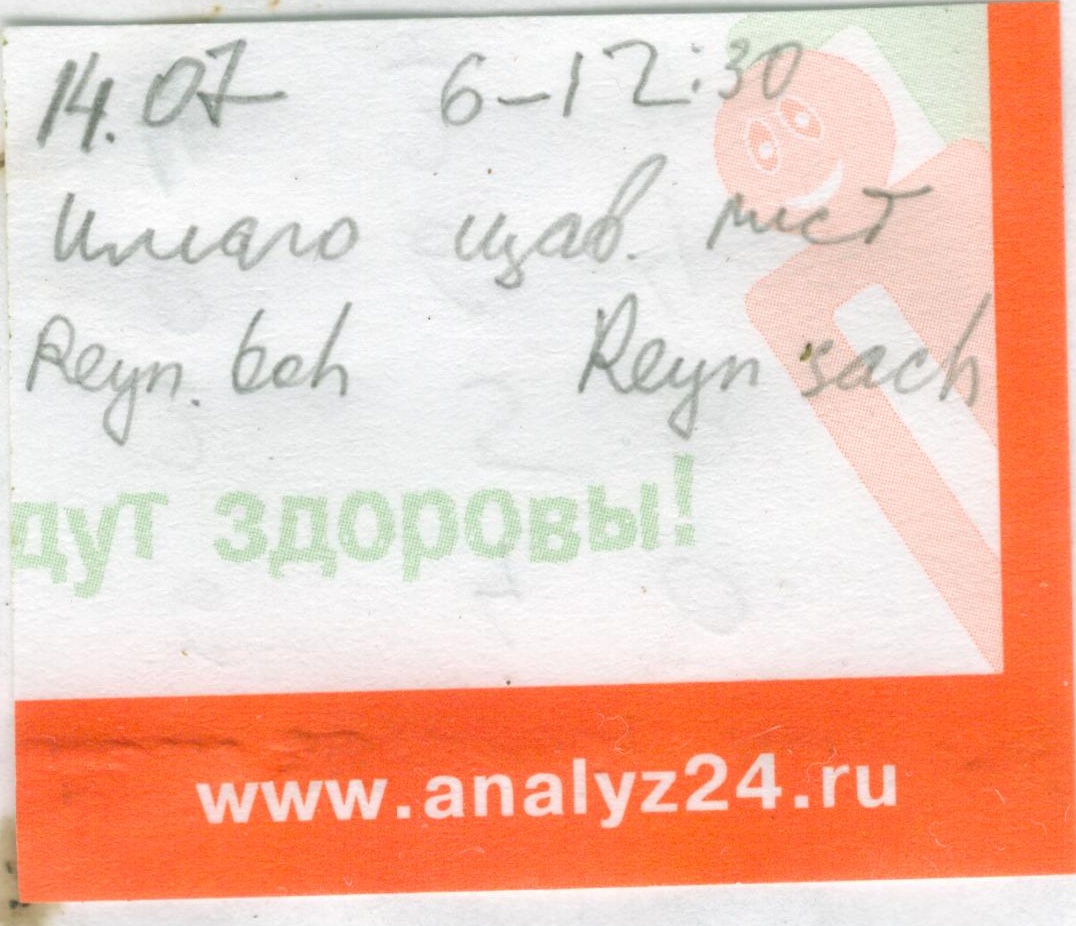 14.07 6-12:30
Имаго щав. лист
Reyn. boh Reyn sach
дут здоровы!
www.analyz24.ru